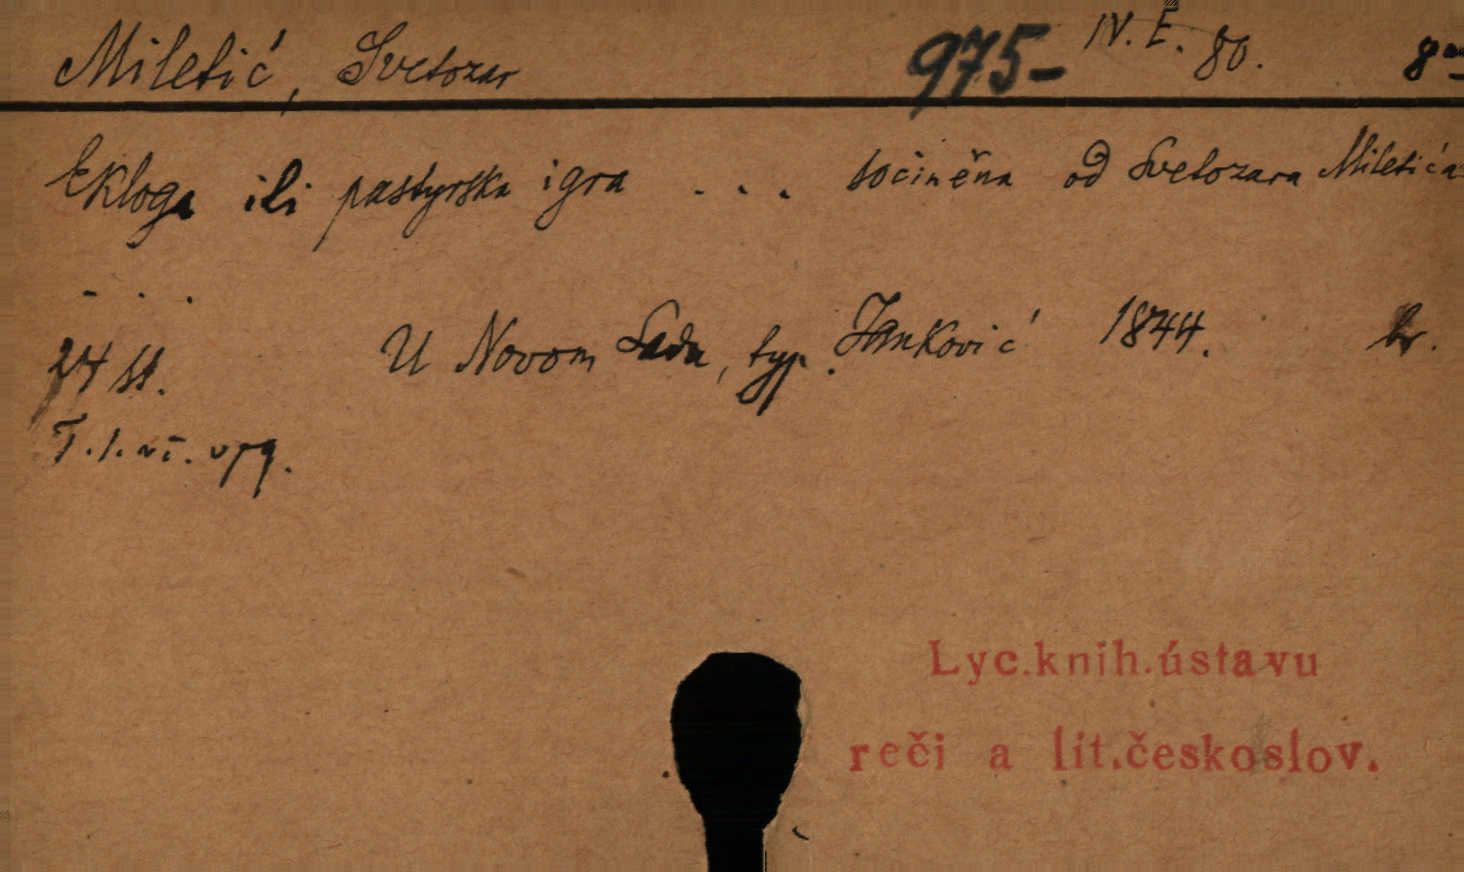 Miletić, Svetozar 975- IV. E. 80. 8
Ekloga ili pastyrska igra . . . sočiněna od Svetozara Miletića
- . .
24 ss. U Novom Sadu, typ. Janković 1844. br.
T. l.
Lyc.knih.ústavu
reči a lit.českoslov.